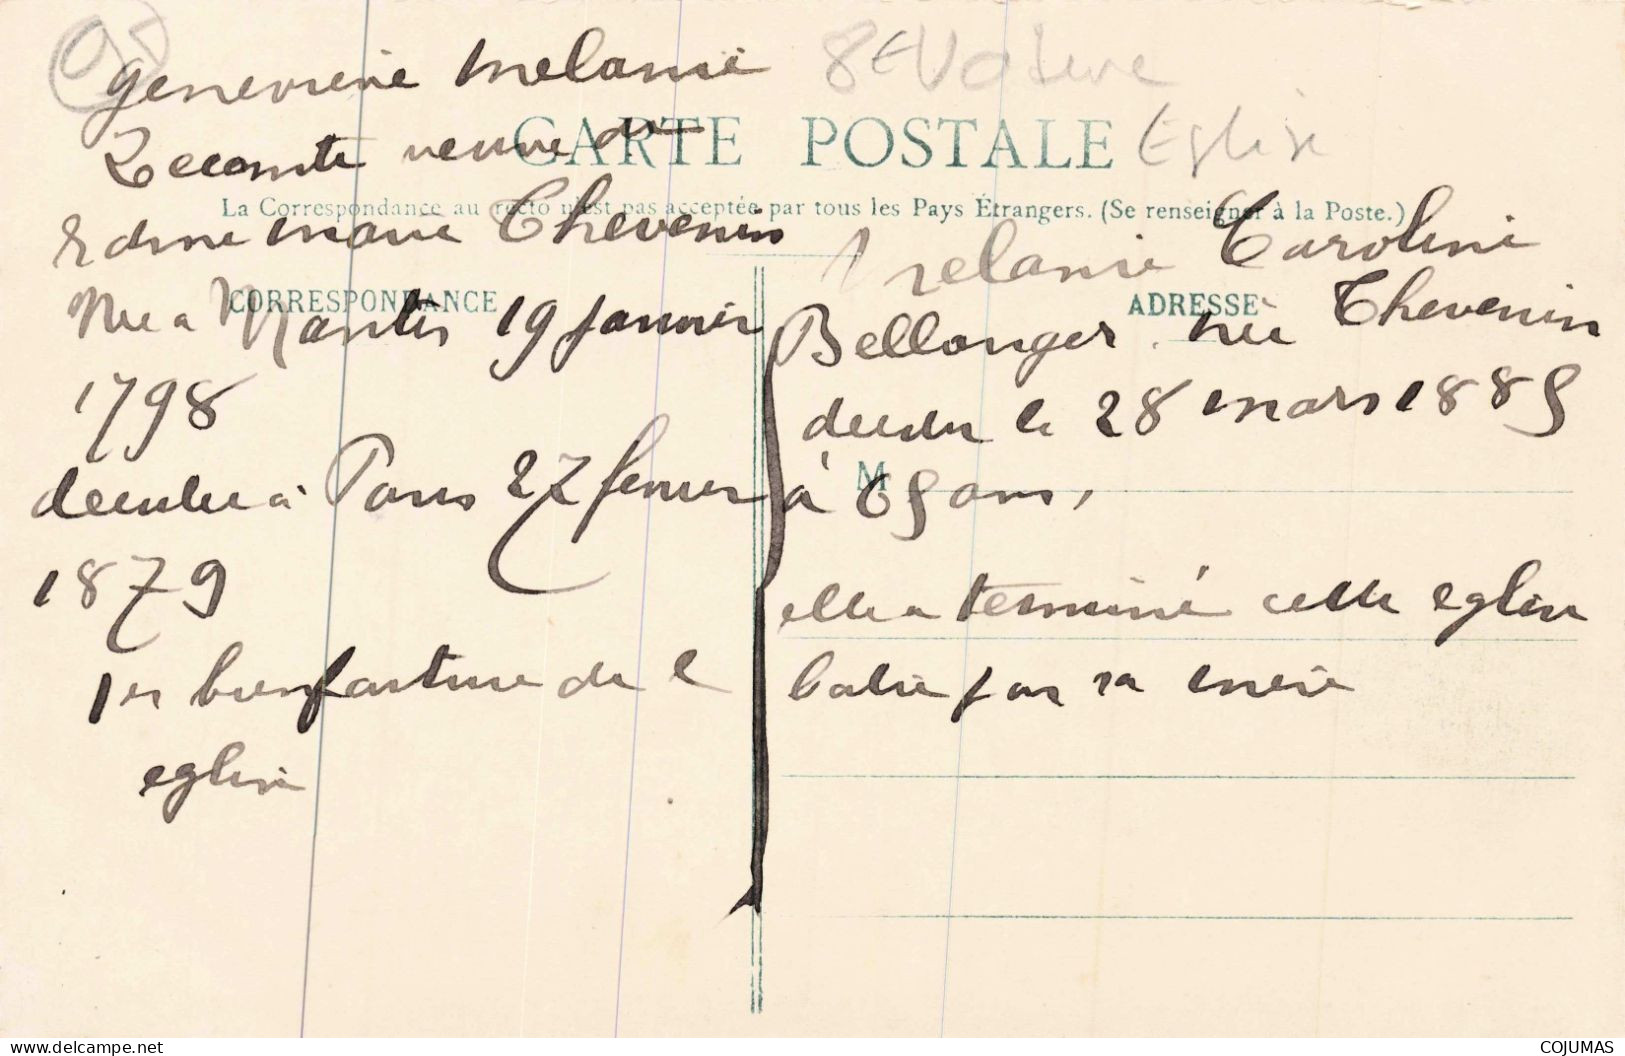 Genevieve Melanie
Lecomte veuve de
Edme Marie Thevenin
Née a Nantes 19 janvier
1798
decedee à Paris 27 fevrier
1879
1er bienfaitrice de l
eglise
CARTE POSTALE
Eglise
La Correspondance au recto n'est pas acceptée par tous les Pays Étrangers. (Se renseigner à la Poste.)
CORRESPONDANCE
ADRESSE
Melanie Caroline
Bellanger née Thevenin
decedee le 28 mars 1885
M
à 65 ans,
elle a terminé cette eglise
batie par sa mere
delcampe.net
COJUMAS